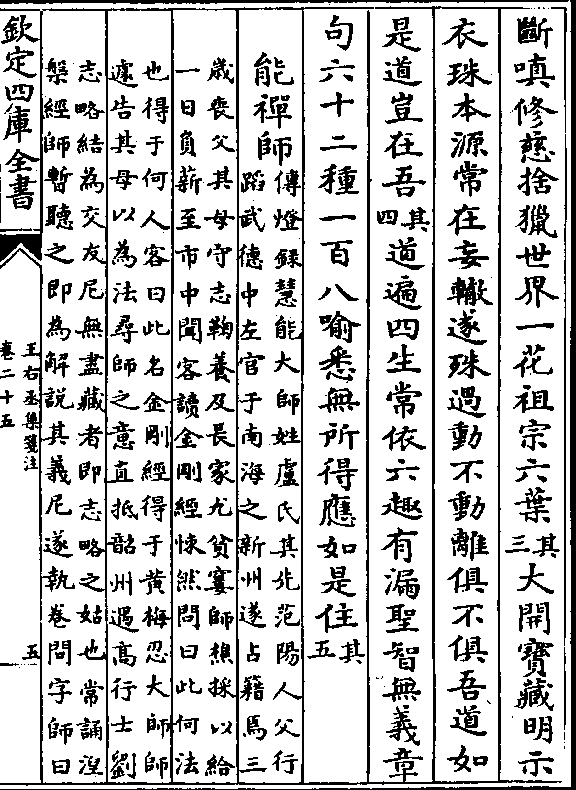 斷嗔修慈捨獵世界一花祖宗六葉其三大開寶藏明示
衣珠本源常在妄轍遂殊過動不動離俱不俱吾道如
是道豈在吾其四道遍四生常依六趣有漏聖智無義章
句六十二種一百八喻悉無所得應如是住其五
能禪師
傳燈錄慧能大師姓盧氏其先范陽人父行
蹈武德中左官于南海之新州遂占籍焉三
歲喪父其母守志鞠養及長家尤貧窶師樵採以給
一日負薪至市中聞客讀金剛經悚然問曰此何法
也得于何人客曰此名金剛經得于黃梅忍大師師
遽告其母以為法尋師之意直抵韶州遇高行士劉
志略結為交友尼無盡藏者即志略之姑也常誦涅
槃經師暫聽之即為解說其義尼遂執卷問字師曰
欽定四庫全書
王右丞集箋注
卷二十五
五